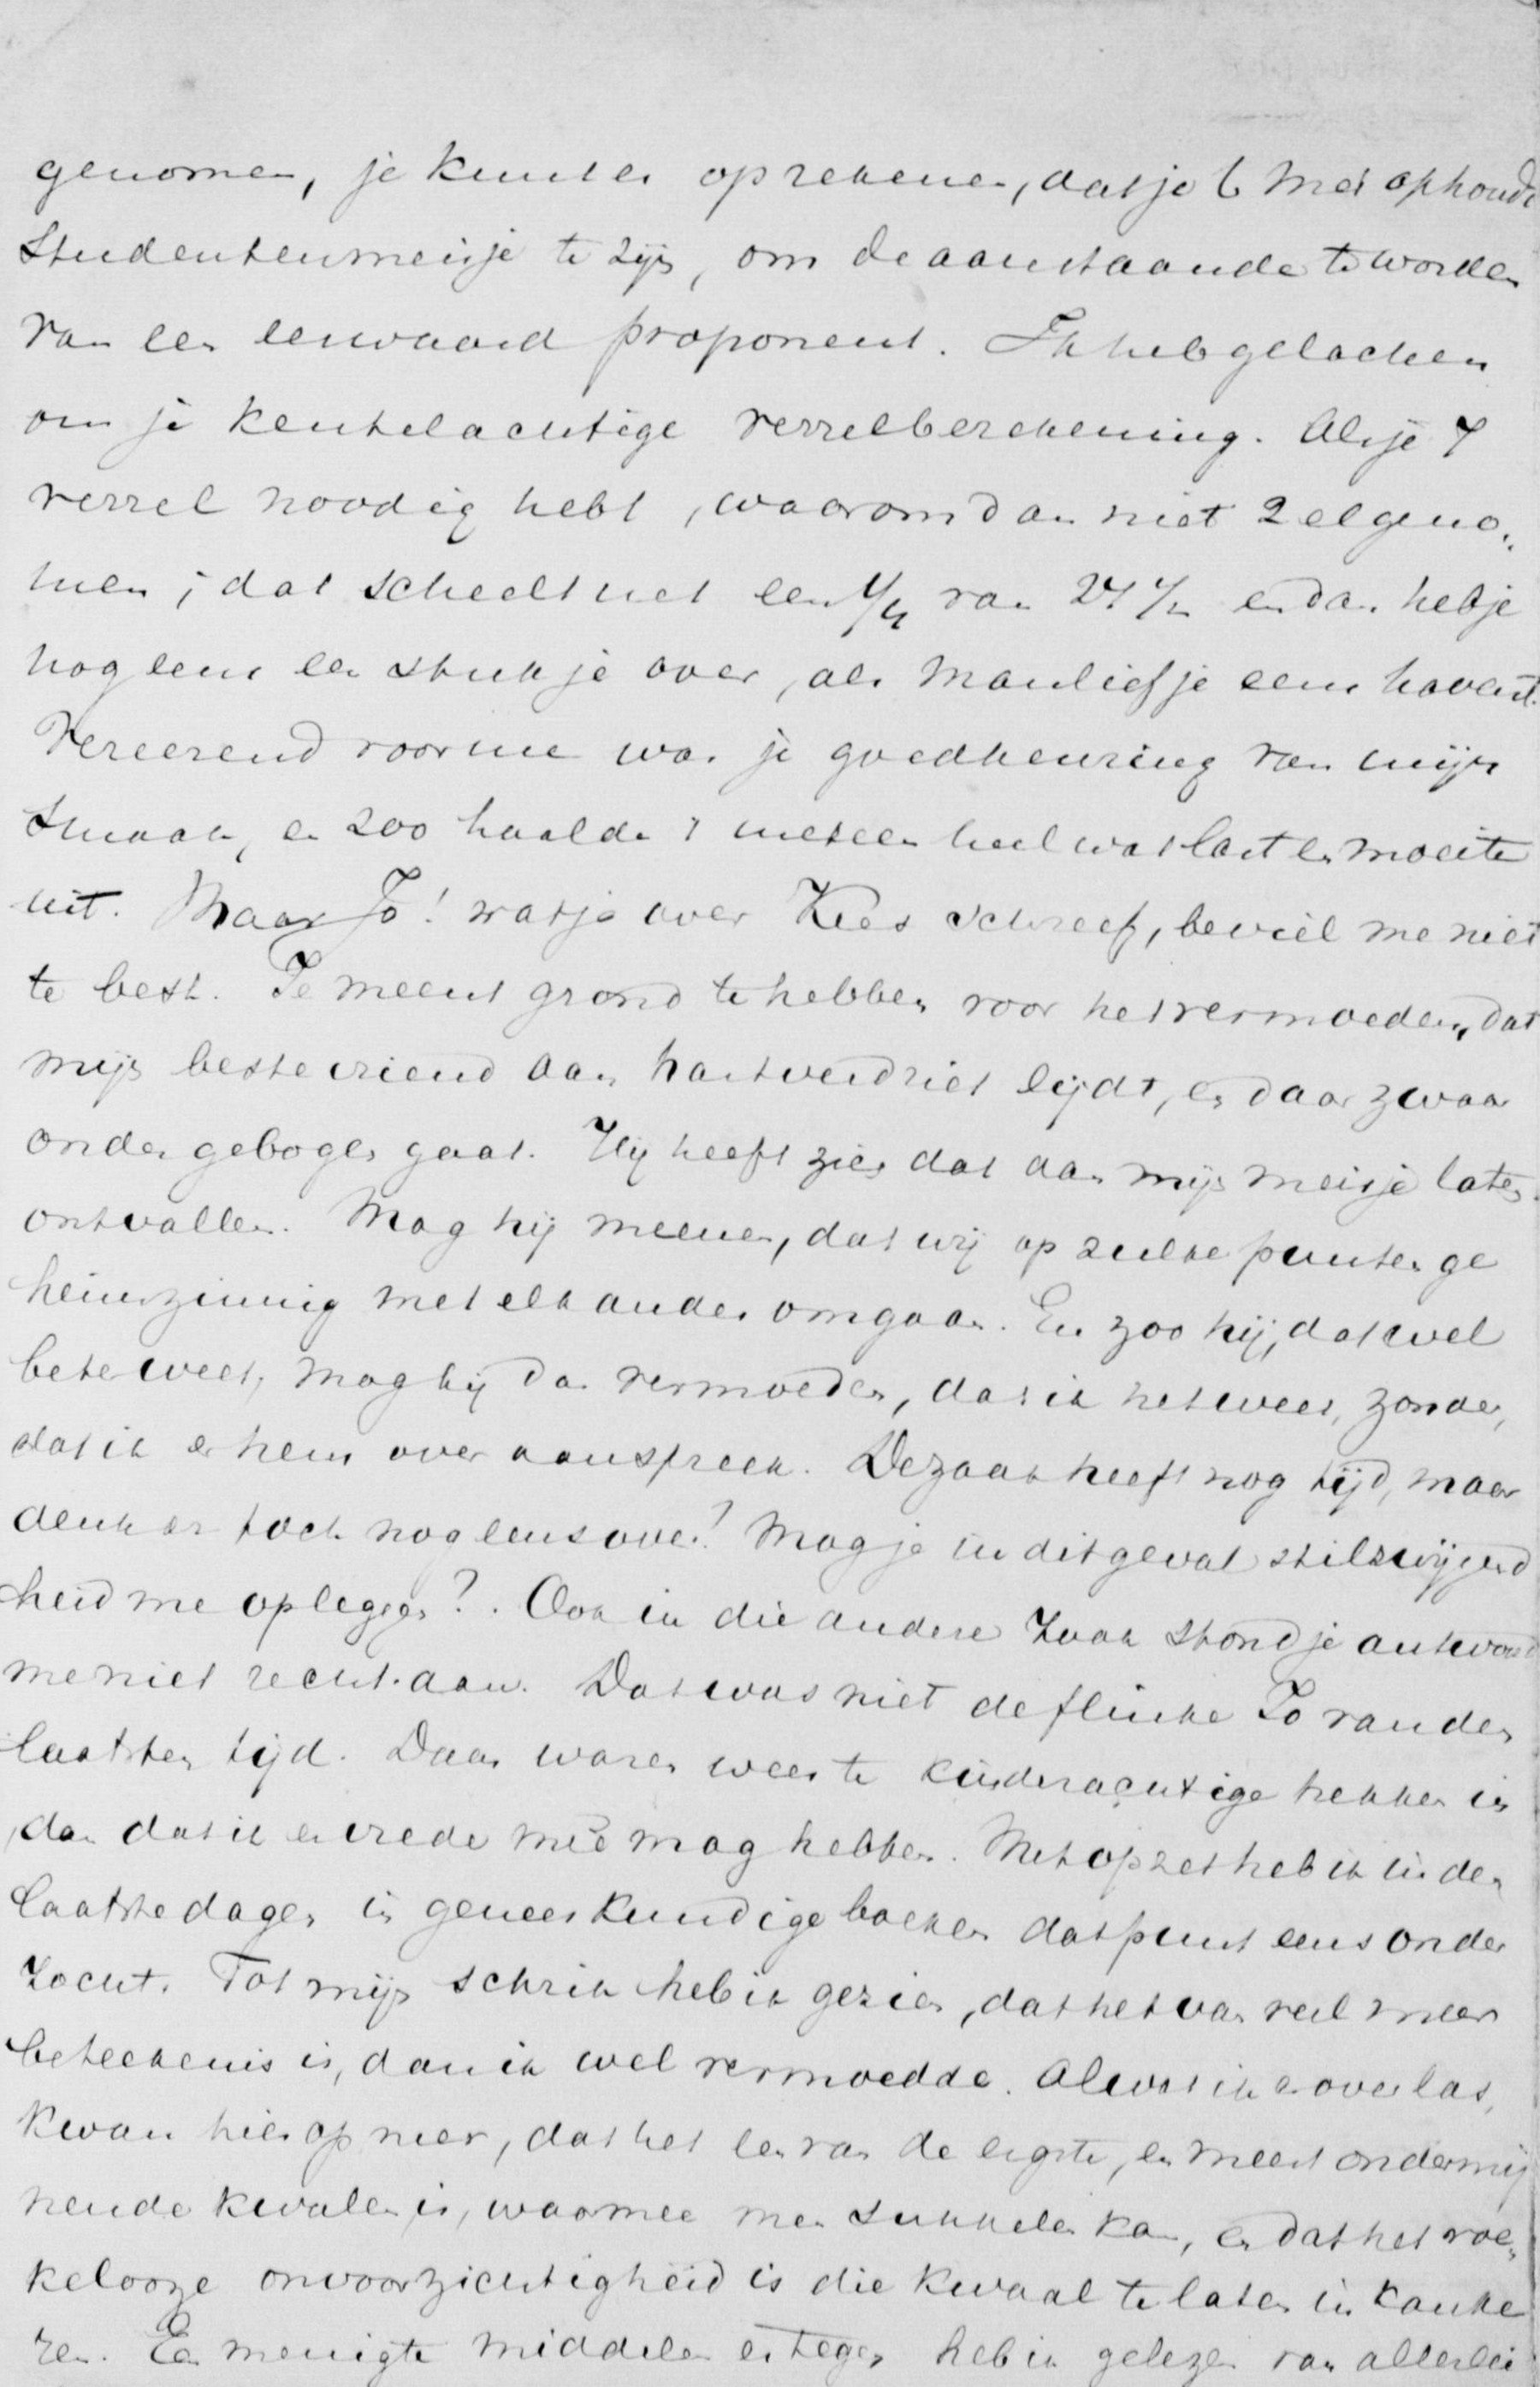 genomen, je kunt er op rekenen, dat je 6 Mei ophoudt
Studentenmeisje te zijn, om de aanstaande te worden
van een eerwaard proponent. Ik heb gelachen
om je kentelachtige verrelberekening. Als je 7
verrel noodig hebt, waarom dan niet 2 el geno„
men; dat scheelt net een 1/4 van 27 1/2 en dan heb je
nog eens een stukje over, als manlief je eens havent.
Vereerend voor me was je goedkeuring van mijn
Smaak, en zoo haalde 't meteen heel wat last en moeite
uit. Maar Jo! wat je over Kees schreef, beviel me niet
te best. Je meent grond te hebben voor het vermoeden, dat
mijn beste vriend aan hartverdriet lijdt, en daar zwaar
onder gebogen gaat. Hij heeft zich dat aan mijn meisje laten
ontvallen. Mag hij meenen, dat wij op zulke punten ge
heimzinnig met elkander omgaan. En zoo hij, dat wel
beter weet, mag hij dan vermoeden, dat ik het weet, zonder,
dat ik er hem over aanspreek. De zaak heeft nog tijd, maar
denk er toch nog eens over! Mag je in dit geval stilzwijgend
heid me opleggen?. Ook in die andere zaak stond je antwoord
me niet recht aan. Dat was niet de flinke Jo van den
laatsten tijd. Daar waren weer te kinderachtige trekken in
, dan dat ik er vrede meê mag hebben. Met opzet heb ik in den
laatste dagen in geneeskundige boeken dat punt eens onder
zocht. Tot mijn schrik heb ik gezien, dat het van veel meer
beteekenis is, dan ik wel vermoedde. Al wat ik er over las,
kwam hier op neer, dat het een van de ergste, en meest ondermij
nende kwalen is, waarmee men sukkelen kan, en dat het roe„
kelooze onvoorzichtigheid is die kwaal te laten in kanke
ren. Een menigte middelen er tegen heb ik gelezen van allerlei